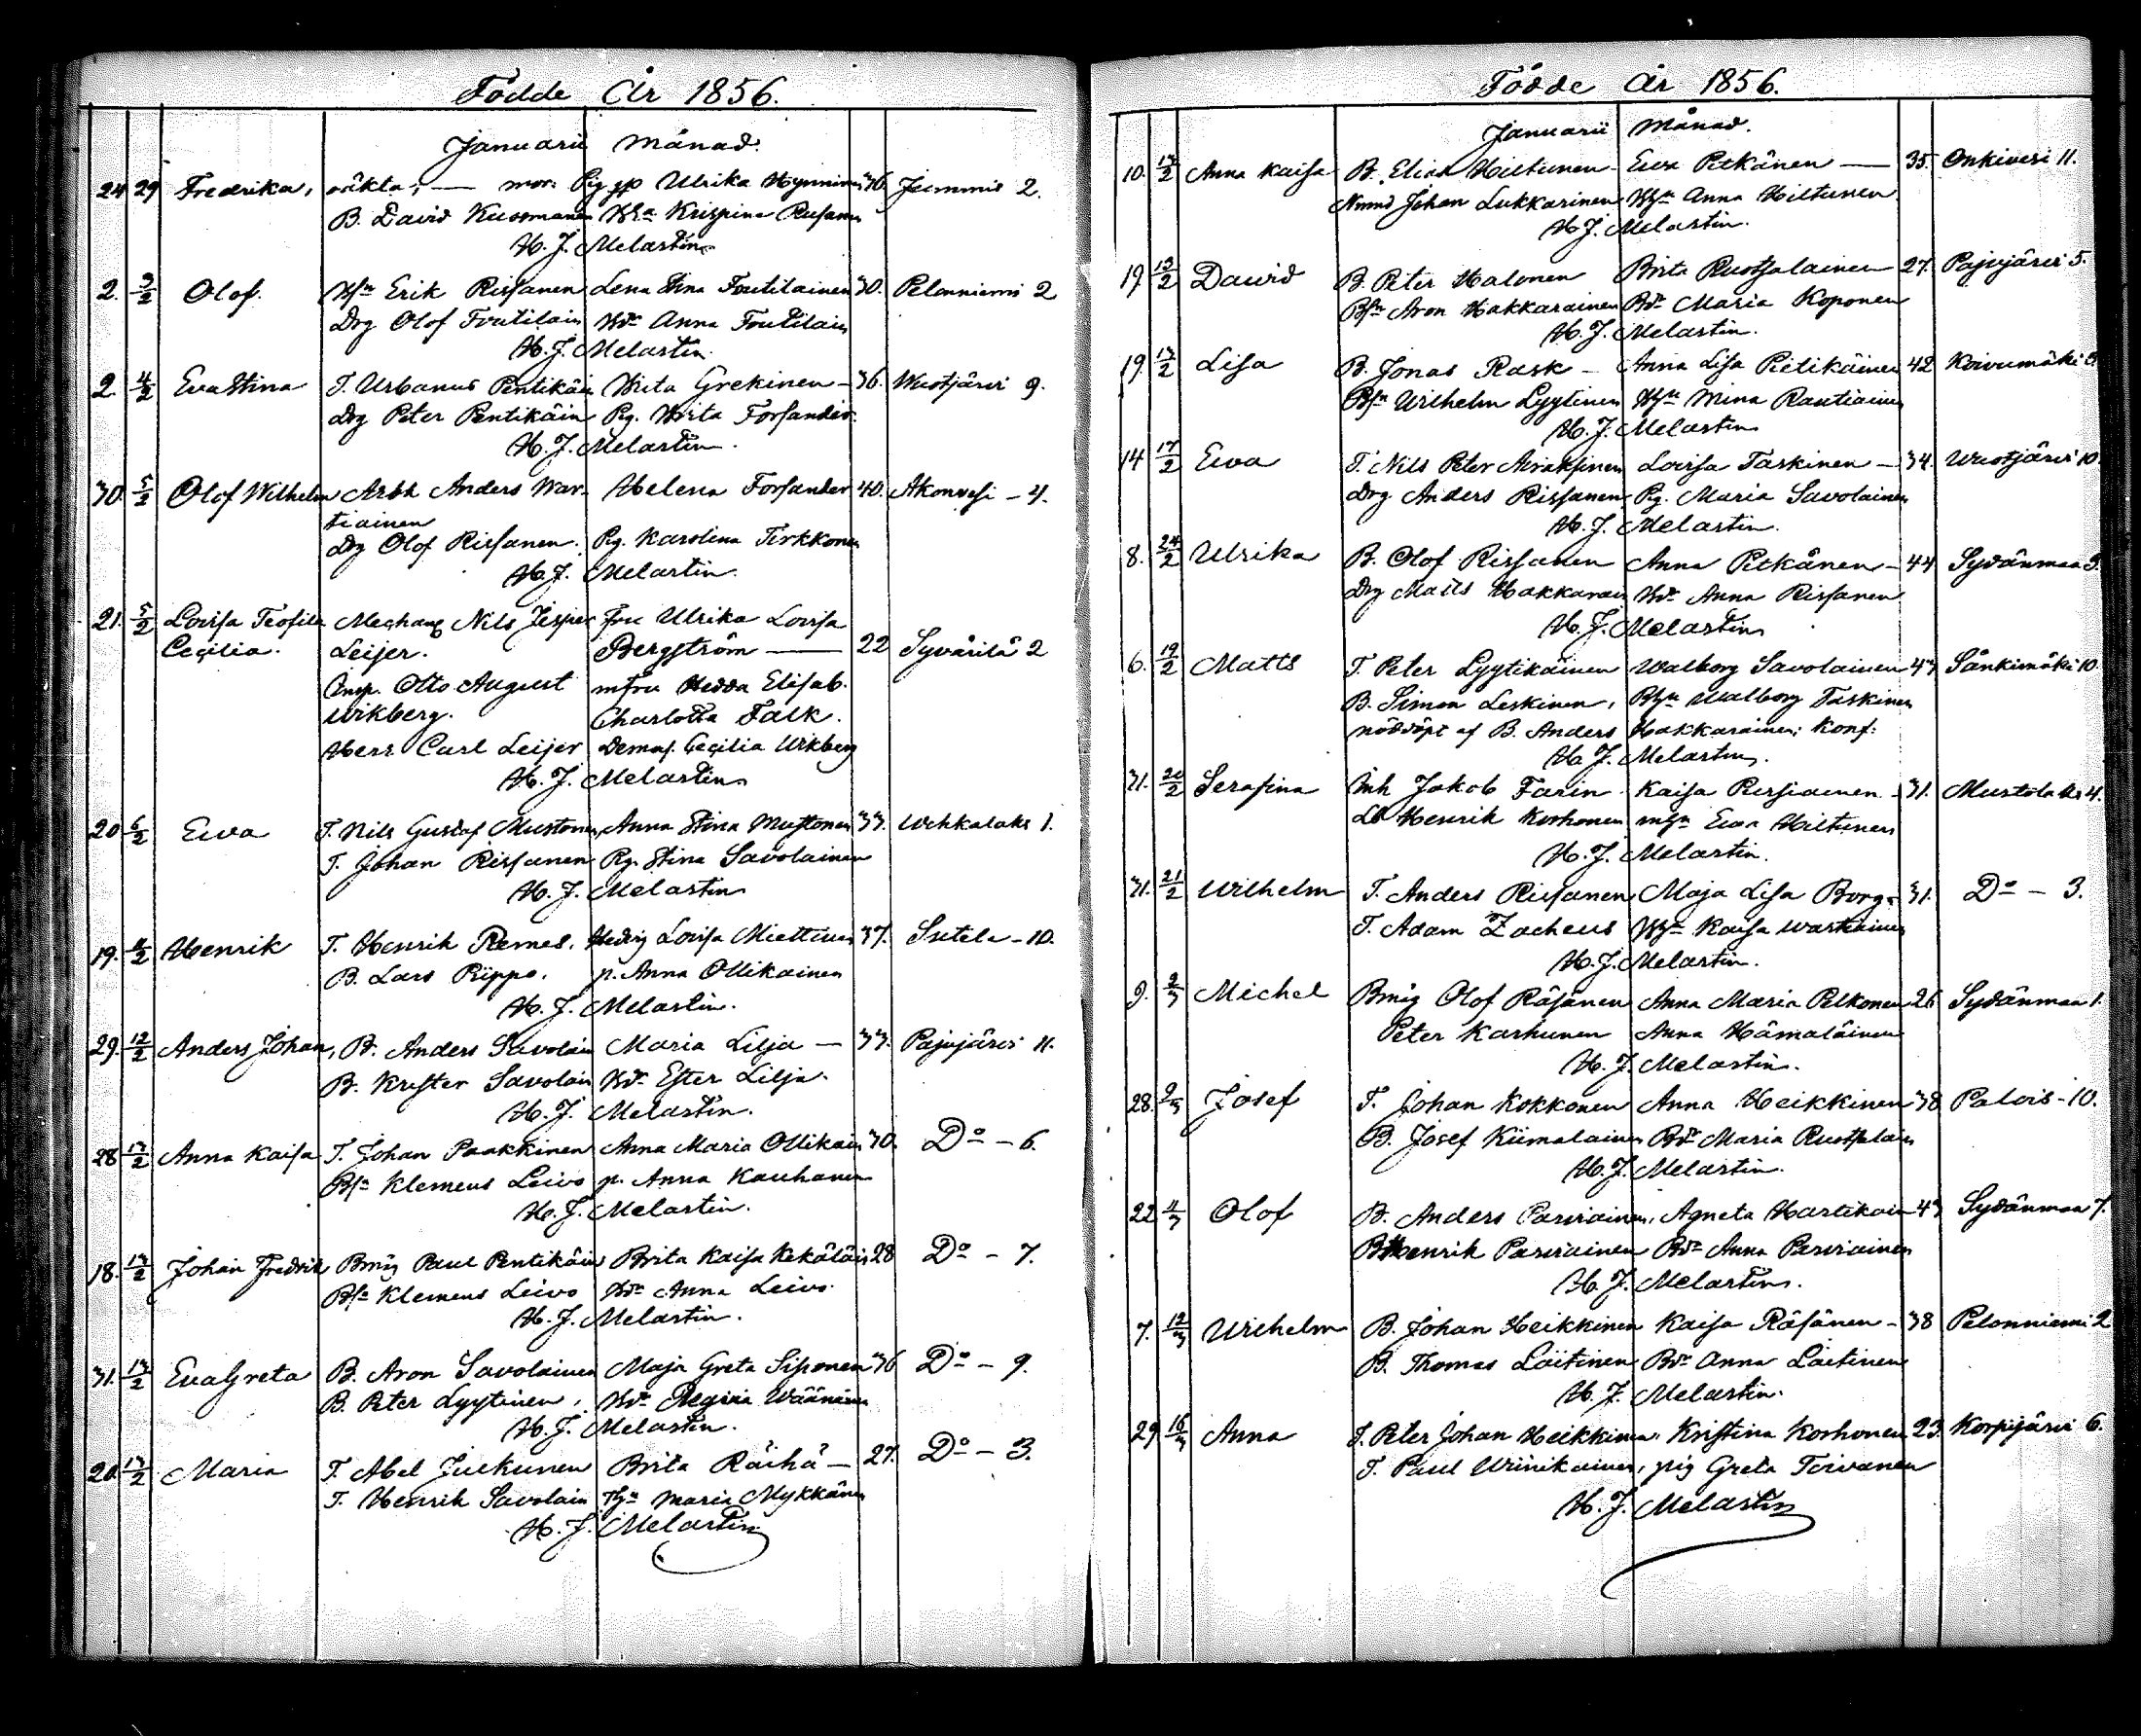 Födde År 1856.
Januarii Månad.
24 29 Fredrika, oäkta; — mor: Pig gp Ulrika Hynninen 36. Jummis 2.
B. David Kuosmanen Hha Krispina Rusanen
H. J. Melartin
2. 3/2 Olof. Bsn Erik Rissanen Lena Stina Toutilainen 30. Pelonniemi 2
Drg Olof Toutilain Bd. Anna Toutilain
H. J. Melartin.
2. 4/2 Eva Stina T. Urbanus Pentikäin Brita Grekinen — 36. Wuotjärvi 9.
Drg Peter Pentikäin Pg. Brita Forsander.
H. J. Melartin.
30. 5/2 Olof Wilhelm Arbk Anders War- Helena Forsander 40. Akonvesi - 4.
tiainen
Drg Olof Rissanen. Pg. Karolina Tirkkonen
H. J. Melartin.
21. 5/2 Lovisa Teofila Mechang Nils Jesper Fru Ulrika Lovisa
Cecilia. Leijer. Bergström — 22 Syvärilä 2
Insp. Otto August mfru Hedda Elisab.
Wikberg. Charlotta Falk.
Herr Carl Leijer Demas. Cecilia Wikberg
H. J. Melartin
20 6/2 Ewa T. Nils Gustaf Mustonen, Anna Stina Mustonen 33. Wehkalaks 1.
T. Johan Rissanen Pg. Stina Savolainen
H. J. Melartin
19. Henrik T. Henrik Remes. Hedvig Lovisa Miettinen 37. Sutela - 10.
B. Lars Rippo. p. Anna Ollikainen
H. J. Melartin.
29. 12/2 Anders Johan, B. Anders Savolain Maria Lilja — 33. Pajujärvi 11.
B. Krister Savolain Bd. Ester Lilja.
H. J. Melartin.
28 13/2 Anna Kaisa T. Johan Paakkinen Anna Maria Ollikain 30. Do - 6.
Bsn Klemens Leivo p. Anna Kauhanen
H. J. Melartin.
18. 13/2 Johan Fredrik Bmåg Paul Pentikäin Brita Kaisa Kekäläin 28 Do - 7.
Bsn Klemens Leivo Bd. Anna Leivo.
H. J. Melartin.
31. 13/2 Eva Greta B. Aron Savolainen Maja Greta Siponen 36 Do - 9.
B. Peter Lyytinen, Bd. Regina Wäänänen
H. J. Melartin.
20. 13/2 Maria T. Abel Juckunen Brita Räihä — 27. Do - 3.
T. Henrik Savolain Maria Mykkänen
H. J. Melartin
Födde År 1856.
Januarii Månad.
10. 13/2 Anna Kaisa B. Elias Hiltunen - Ewa Pitkänen — 35. Onkivesi 11.
Nmnd Johan Lukkarinen Anna Hiltunen
H. J. Melartin.
19. 13/2 David B. Peter Halonen Brita Ruotsalainen 27. Pajujärvi 5.
Bsn Aron Hakkarainen Bd. Maria Koponen
H. J. Melartin.
19. 13/2 Lisa B. Jonas Rask - Anna Lisa Pietikäinen 42 Koivumäki
Bsn Wilhelm Lyytinen Mina Rautiainen
H. J. Melartin
14 17/2 Ewa T. Nils Peter Airaksinen Lovisa Taskinen — 34. Wuotjärvi 10
Drg Anders Rissanen Pg. Maria Savolainen
H. J. Melartin.
8. 24/2 Ulrika B. Olof Rissanen Anna Pitkänen - 44 Sydänmaa 3.
Drg Matts Hakkarain Bd. Anna Rissanen
H. J. Melartin
6. 19/2 Matts T. Peter Lyytikäinen Walborg Savolainen 43 Sänkimäki 10.
B. Simon Leskinen, Walborg Taskinen
nöddöpt af B. Anders Hakkarainen; Konf:
H. J. Melartin.
31. 20/2 Serafina Inh Jakob Farin. Kaisa Rissianen - 31. Mustolaks 4.
Henrik Korhonen Ewa Hiltunen
H. J. Melartin.
31. 21/2 Wilhelm T. Anders Rissanen Maja Lisa Borg - 31. Do - 3.
T. Adam Zacheus Kaisa Wartiainen
H. J. Melartin.
9. 2/3 Michel Bmåg Olof Räsänen Anna Maria Pelkonen 26 Sydänmaa 1.
Peter Karhunen Anna Hämäläinen
H. J. Melartin.
28. 9/3 Josef T. Johan Kokkonen Anna Heikkinen 38 Palois - 10.
B. Josef Kiimalainen Bd. Maria Ruotsalain
H. J. Melartin.
22. 11/3 Olof B. Anders Parviainen, Agneta Hartikain 43 Sydänmaa 7.
B Henrik Parviainen Bd. Anna Parviainen
H. J. Melartin.
7. 12/3 Wilhelm B. Johan Heikkinen Kaisa Räsänen - 38 Pelonniemi 2
B. Thomas Laitinen Bd. Anna Laitinen
H. J. Melartin.
29 16/3 Anna T. Peter Johan Heikkinen, Kristina Korhonen 23. Korpijärvi 6.
T. Paul Winikainen, pig Greta Toivanen
H. J. Melartin